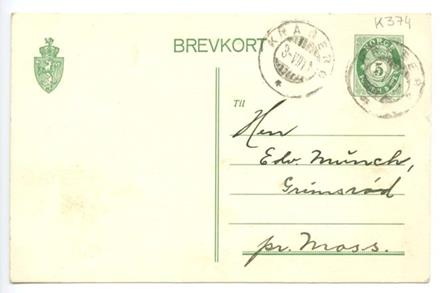 K374
BREVKORT
KRAGERØ
3 VIII
NORGE
5
Til
Herr
Edv. Münch,
Grimsrød
pr. Moss.